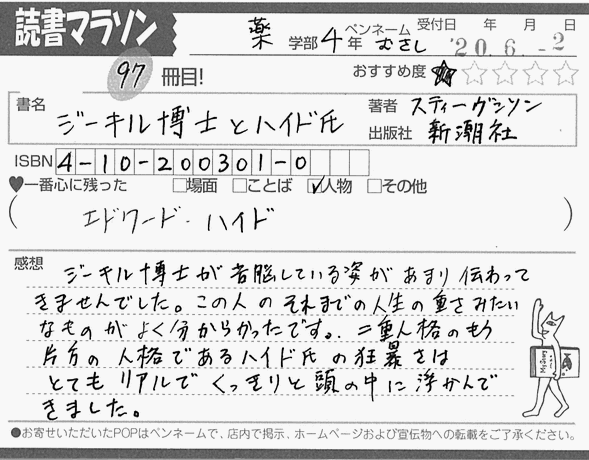 読書マラソン
97冊目!
薬学部4年 ペンネーム むさし 受付日 年 月 日 '20.6.-2
おすすめ度 ★☆☆☆☆
書名 ジーキル博士とハイド氏 著者 スティーヴンソン
出版社 新潮社
ISBN 4-10-200301-0
♥一番心に残った □場面 □ことば ☑人物 □その他
( エドワード・ハイド )
感想 ジーキル博士が苦脳している姿があまり伝わって
きませんでした。この人のそれまでの人生の重さみたい
なものがよく分からなかったです。二重人格のもう
片方の人格であるハイド氏の狂暴さは
とてもリアルでくっきりと頭の中に浮かんで
きました。
●お寄せいただいたPOPはペンネームで、店内で掲示、ホームページおよび宣伝物への転載をご了承ください。